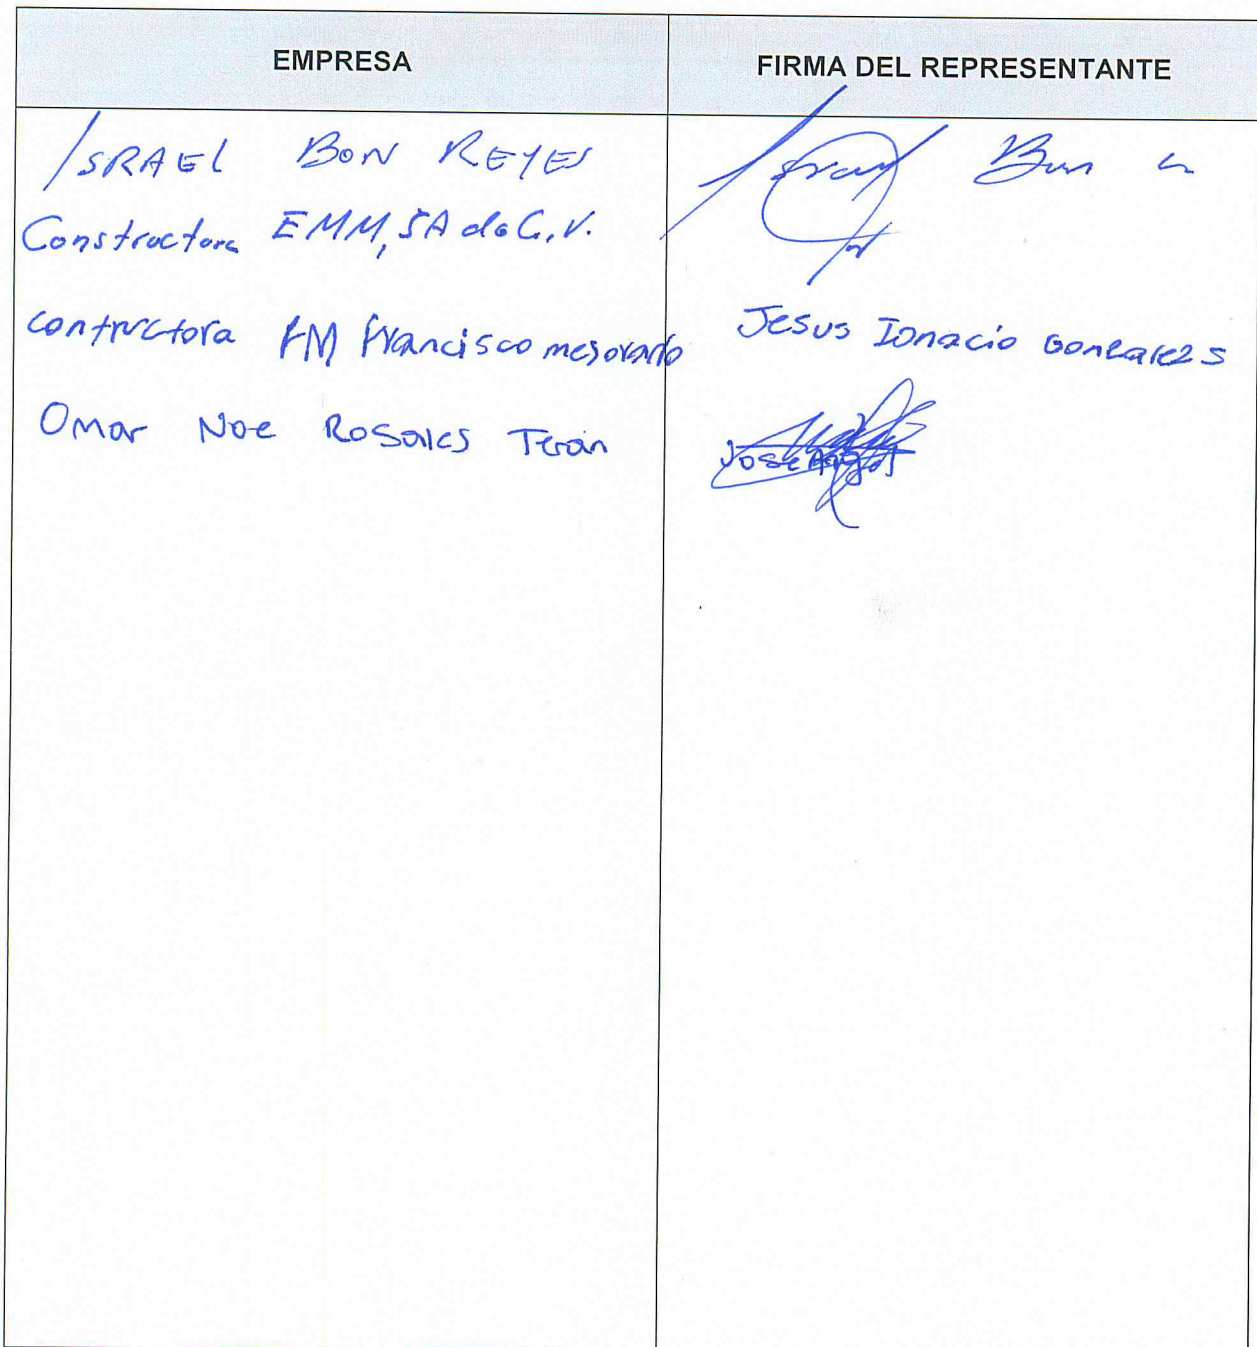 EMPRESA
FIRMA DEL REPRESENTANTE
ISRAEL BON REYES
Constructora EMM, SA de C.V.
contructora FM Francisco
Jesus Ignacio Gonzalez S
Omar Noe Rosales Terán
Jose Angel